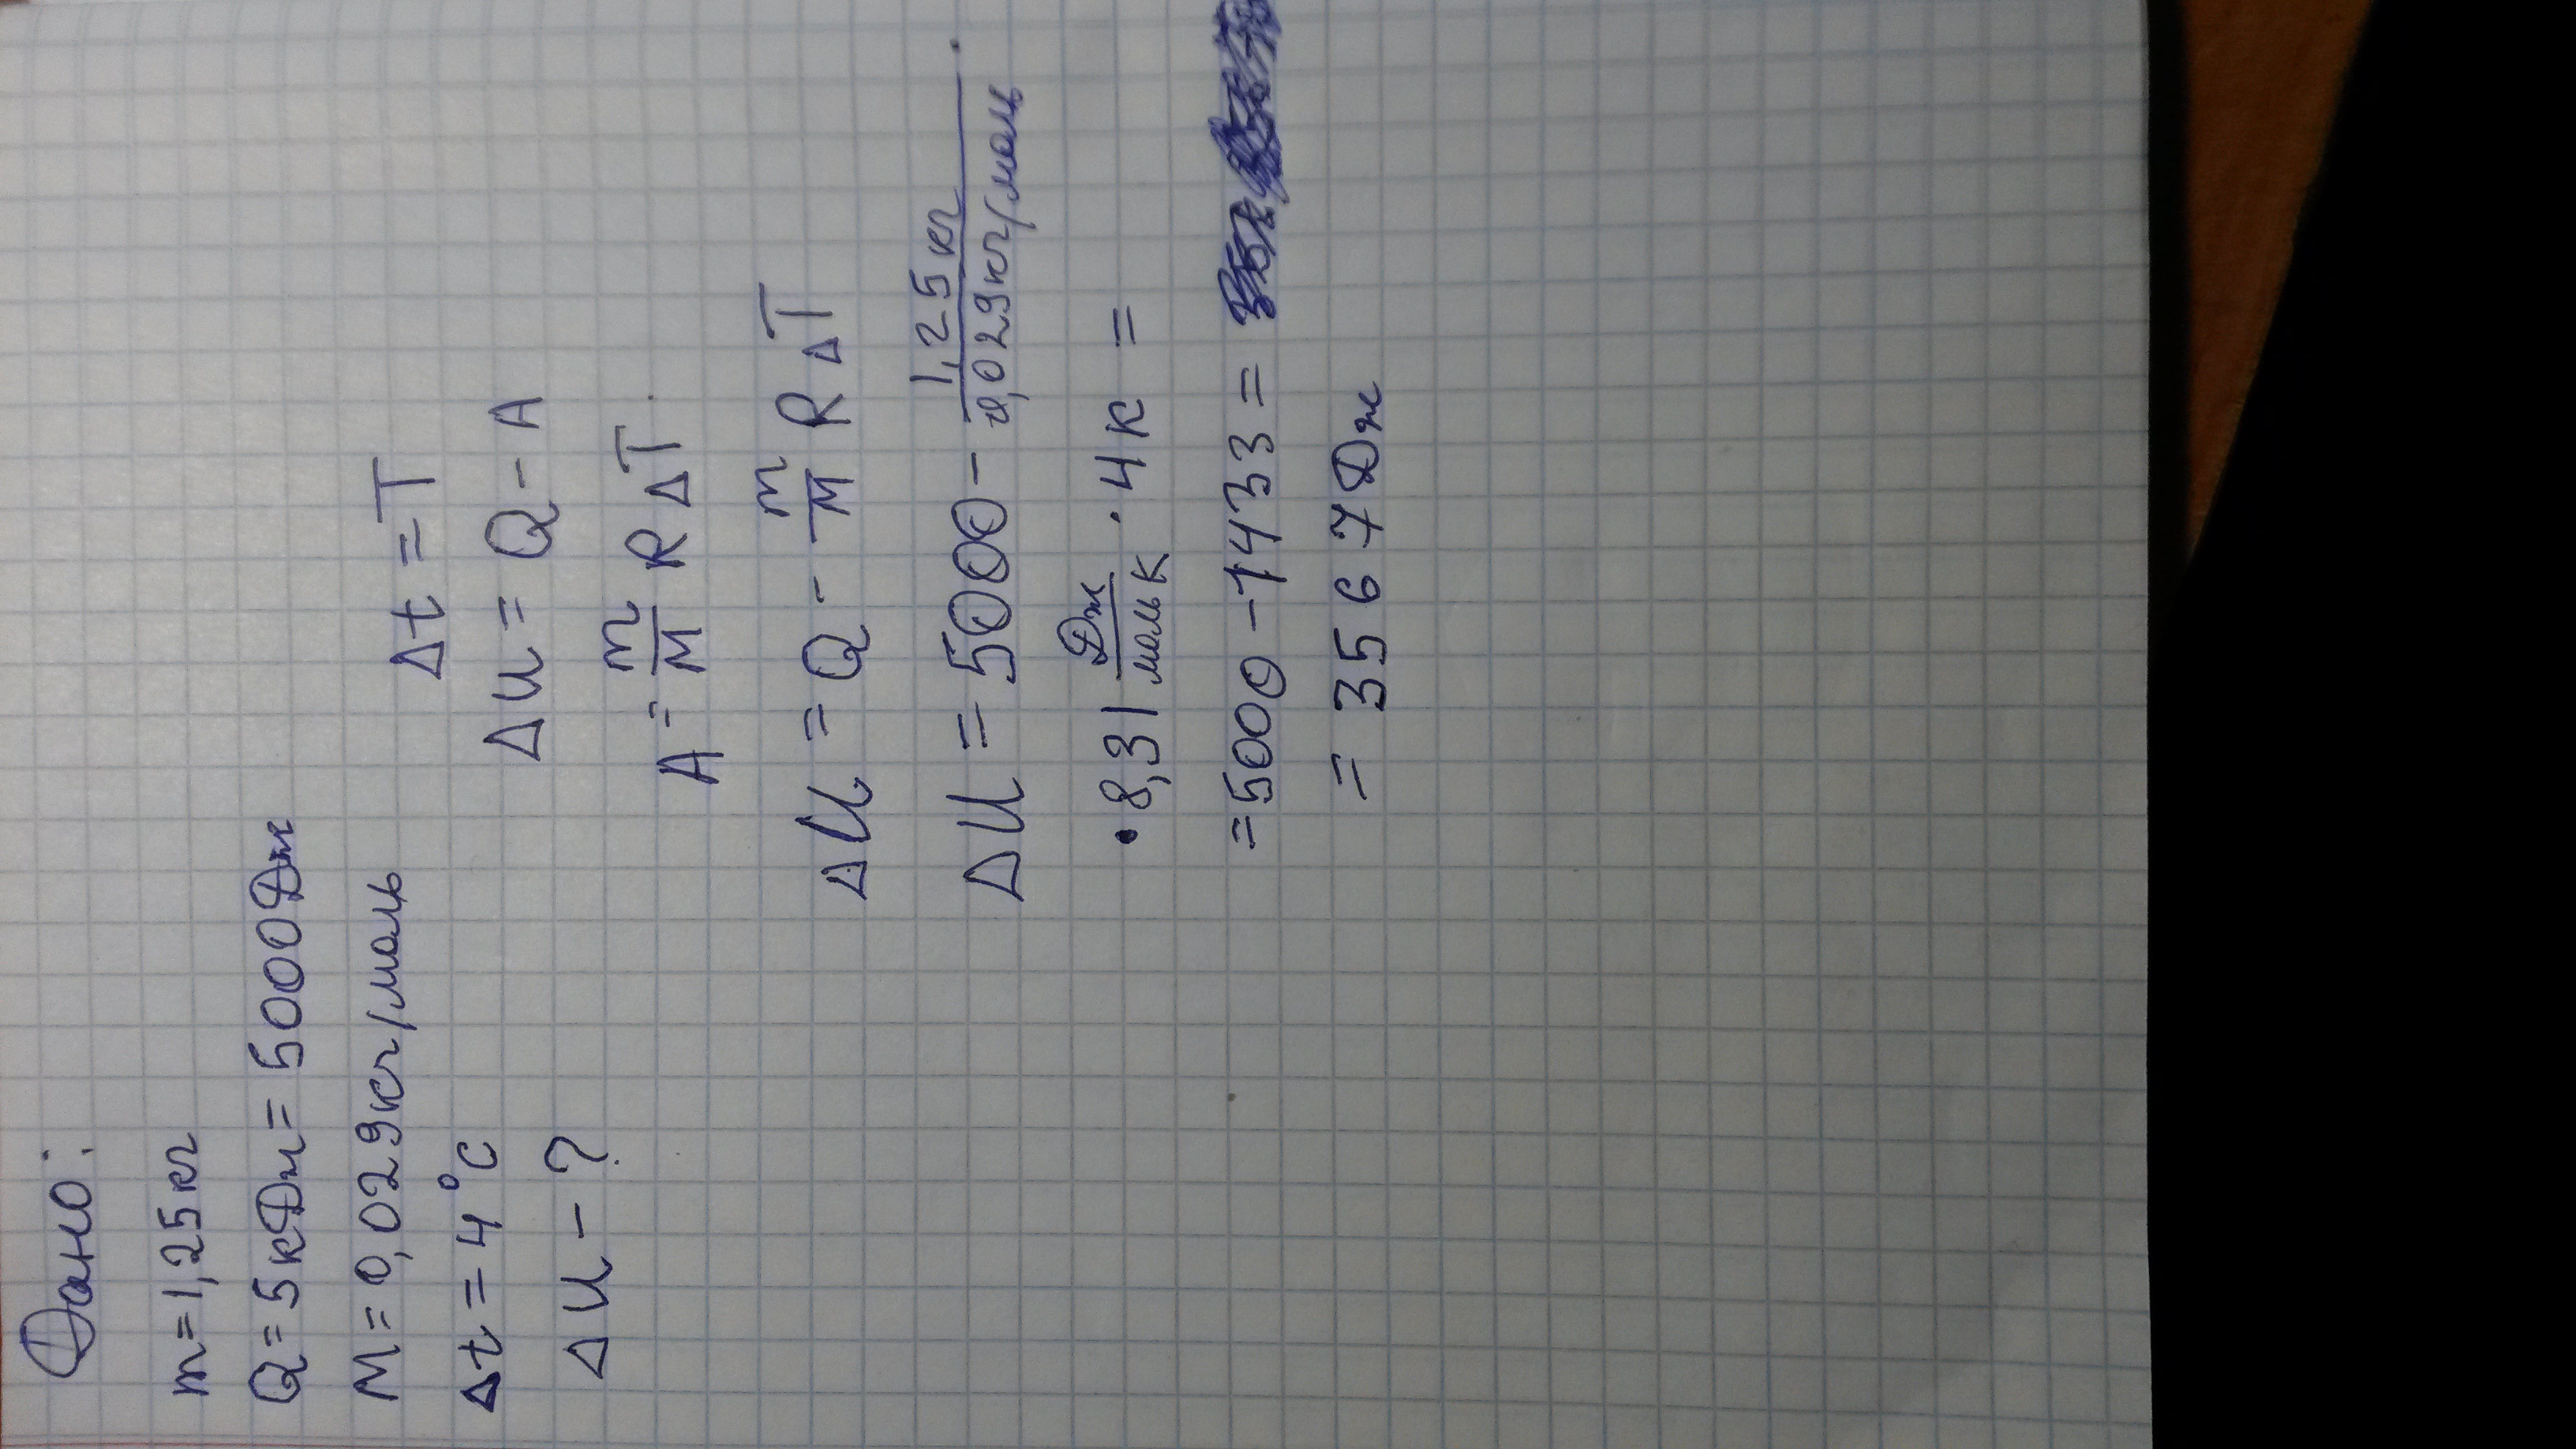 Дано:
m = 1,25 кг
Q = 5 кДж = 5000 Дж
M = 0,029 кг/моль
Δt = 4°C
ΔU - ?
Δt = T
ΔU = Q - A
A = m/M R ΔT.
ΔU = Q - m/M R ΔT
ΔU = 5000 - 1,25 кг / 0,029 кг/моль ·
· 8,31 Дж/моль К · 4 К =
= 5000 - 1433 =
= 3567 Дж